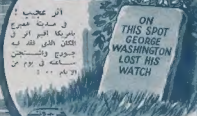 أثر عجيب !
في مدينة همبرج
بأمريكا أقيم أثر في
المكان الذي فقد فيه
جورج واشنجتن
ساعته في يوم من
الأيام ٠٠ !
ON
THIS SPOT
GEORGE
WASHINGTON
LOST HIS
WATCH